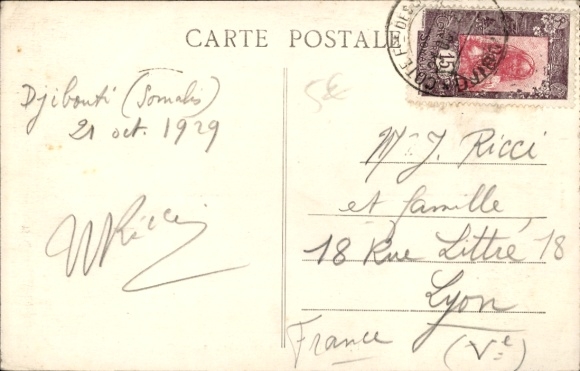 CARTE POSTALE
Djibouti (Somalis)
21 oct. 1929
Ricci
5€
Mr J. Ricci
et famille
18 Rue Littré 18
Lyon
France (Ve)
15